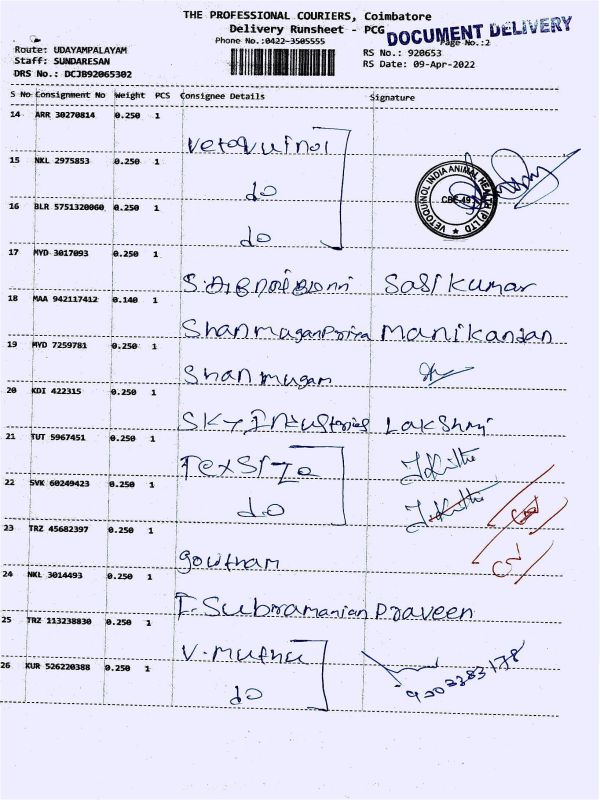 THE PROFESSIONAL COURIERS, Coimbatore
Delivery Runsheet - PCG
DOCUMENT DELIVERY
Phone No.:0422-3505555
Page No.:2
Route: UDAYAMPALAYAM
RS No.: 920653
Staff: SUNDARESAN
RS Date: 09-Apr-2022
DRS No.: DCJB92065302
S No Consignment No Weight PCS Consignee Details Signature
14 ARR 30270814 0.250 1
Vetoquinol
15 NKL 2975853 0.250 1
do
VETOQUINOL INDIA ANIMAL HEALTH (P) LTD
16 BLR 5751320060 0.250 1
do
17 MYD 3017093 0.250 1
Sasi kumar
18 MAA 942117412 0.140 1
Manikandan
19 MYD 7259781 0.250 1
Shanmugam
20 KDI 422315 0.250 1
Lakshmi
21 TUT 5967451 0.250 1
22 SVK 60249423 0.250 1
do
23 TRZ 45682397 0.250 1
goutham
24 NKL 3014493 0.250 1
I. Subramanian Praveen
25 TRZ 113238830 0.250 1
V. Muthu
26 KUR 526220388 0.250 1
do